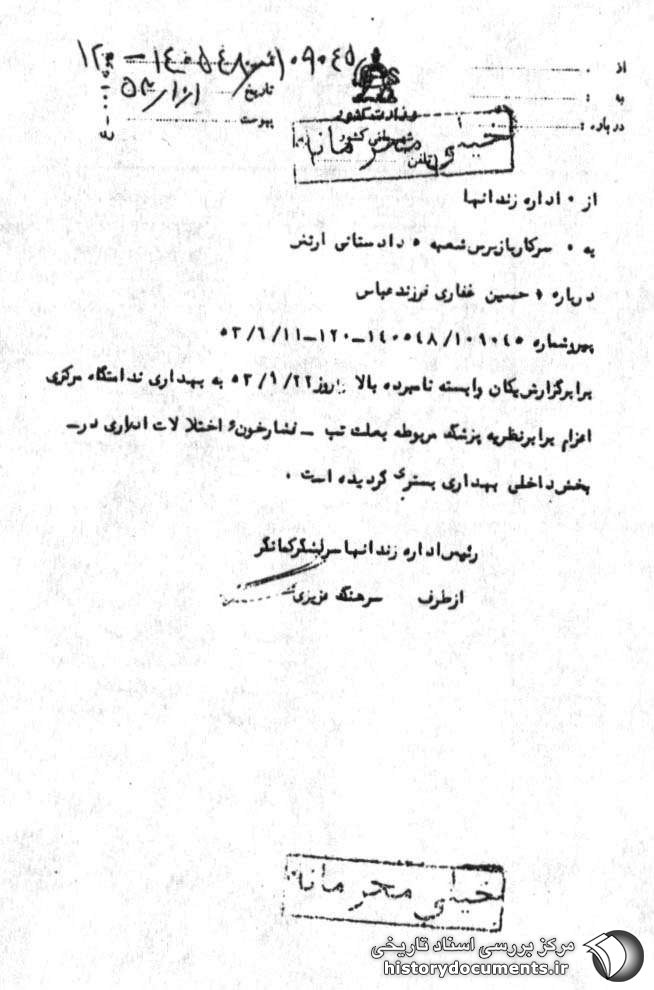 از
به :
درباره :
وزارت کشور
شهربانی کشور
تلفن
شماره ۱۴۰۵۴۸/۱۰۹۰۴۵ - ۱۲۰
تاریخ
پیوست
خیلی محرمانه
از • اداره زندانها
به • سرکار بازپرس شعبه ۵ دادستانی ارتش
درباره • حسین غفاری فرزند عباس
پیرو شماره ۱۴۰۵۴۸/۱۰۹۰۴۵-۱۲۰-۵۳/۶/۱۱
برابر گزارش یکان وابسته نامبرده بالا روز ۵۳/۶/۲۲ به بهداری ندامتگاه مرکزی
اعزام برابر نظریه پزشک مربوطه بعلت تب - فشارخون و اختلالات ادراری در-
بخش داخلی بهداری بستری گردیده است .
رئیس اداره زندانها سرلشگر کمانگر
از طرف سرهنگ عزیزی
خیلی محرمانه
مرکز بررسی اسناد تاریخی
historydocuments.ir